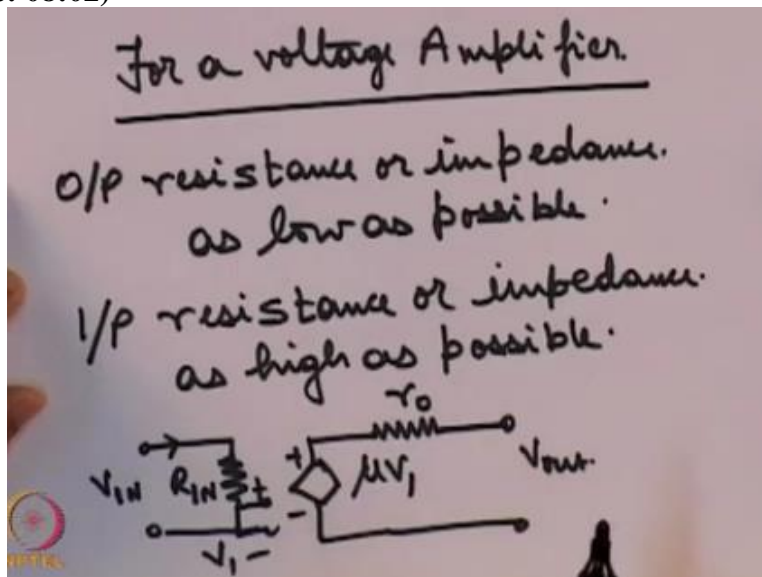 For a voltage Amplifier.
O/P resistance or impedance.
as low as possible.
I/P resistance or impedance.
as high as possible.
r₀
V_IN R_IN + + μV₁ V_out.
- V₁ -
NPTEL